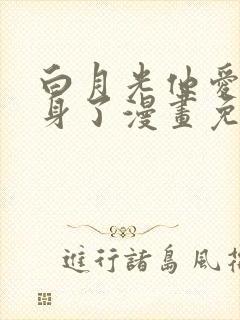 白月光他愛
身了漫畫免
進行諸島風